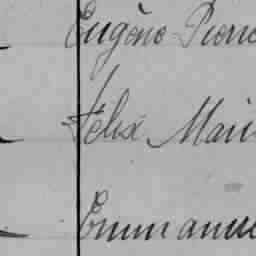 Eugène Pierre
Félix Mari
Emmanue